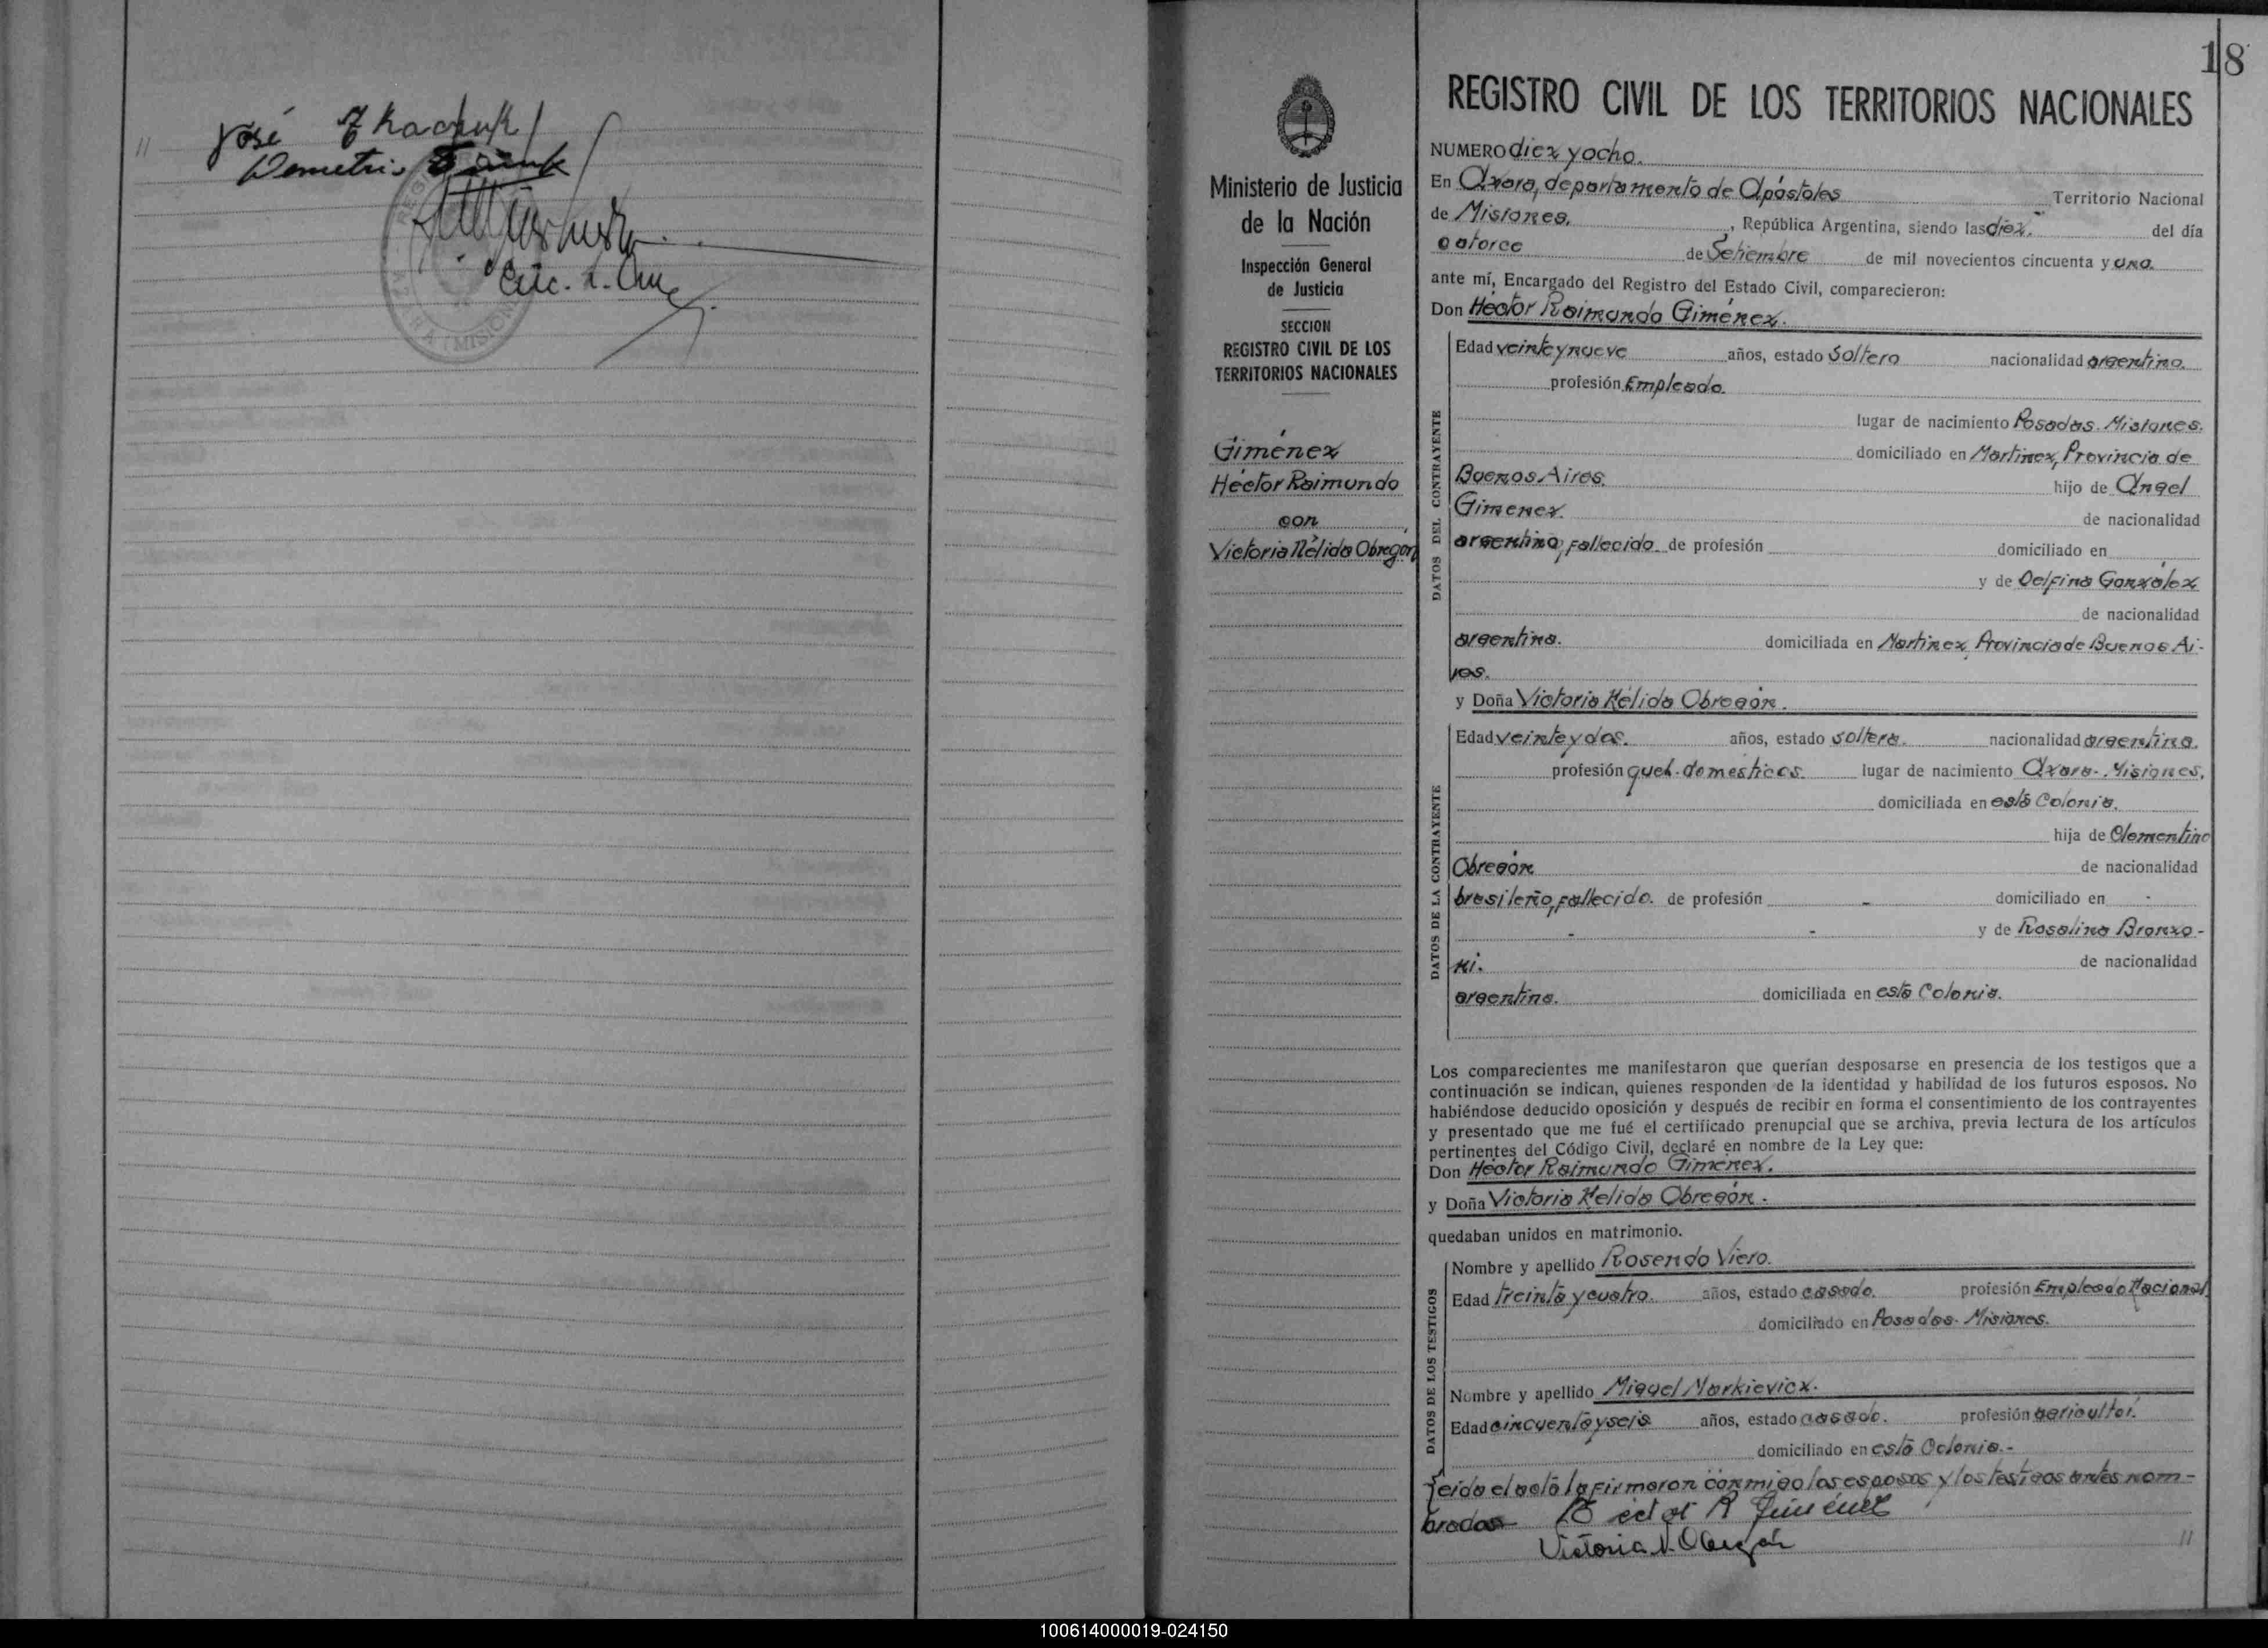 José Tkachuk
Demetrio
Enc. R. Civ.
18
Ministerio de Justicia
de la Nación
Inspección General
de Justicia
SECCION
REGISTRO CIVIL DE LOS
TERRITORIOS NACIONALES
Giménez
Héctor Raimundo
con
Victoria Nélida Obregón
REGISTRO CIVIL DE LOS TERRITORIOS NACIONALES
NUMERO diez y ocho.
En Azara, departamento de Apóstoles Territorio Nacional
de Misiones, , República Argentina, siendo las diez. del día
catorce de Setiembre de mil novecientos cincuenta y uno.
ante mí, Encargado del Registro del Estado Civil, comparecieron:
Don Héctor Raimundo Giménez.
DATOS DEL CONTRAYENTE
Edad veinte y nueve años, estado soltero nacionalidad argentina.
profesión Empleado.
lugar de nacimiento Posadas. Misiones.
domiciliado en Martinez, Provincia de
Buenos Aires. hijo de Angel
Gimenez. de nacionalidad
argentina, fallecido. de profesión domiciliado en
y de Delfina González
de nacionalidad
argentina. domiciliada en Martinez, Provincia de Buenos Ai-
res.
y Doña Victoria Nélida Obregón.
DATOS DE LA CONTRAYENTE
Edad veinte y dos. años, estado soltera. nacionalidad argentina.
profesión queh. domesticos. lugar de nacimiento Azara - Misiones,
domiciliada en esta Colonia.
hija de Clementino
Obregón de nacionalidad
brasileño, fallecido. de profesión - domiciliado en -
- - y de Rosalina Bronzo-
ni. de nacionalidad
argentina. domiciliada en esta Colonia.
Los comparecientes me manifestaron que querían desposarse en presencia de los testigos que a
continuación se indican, quienes responden de la identidad y habilidad de los futuros esposos. No
habiéndose deducido oposición y después de recibir en forma el consentimiento de los contrayentes
y presentado que me fué el certificado prenupcial que se archiva, previa lectura de los artículos
pertinentes del Código Civil, declaré en nombre de la Ley que:
Don Héctor Raimundo Giménez.
y Doña Victoria Nelida Obregón.
quedaban unidos en matrimonio.
DATOS DE LOS TESTIGOS
Nombre y apellido Rosendo Viero.
Edad treinta y cuatro. años, estado casado. profesión Empleado Nacional.
domiciliado en Posadas - Misiones.
Nombre y apellido Miguel Markievicz.
Edad cincuenta y seis años, estado casado. profesión agricultor.
domiciliado en esta Colonia.-
Leida el acta la firmaron conmigo los esposos y los testigos antes nom-
brados Hector R Giménez
Victoria N. Obregón
100614000019-024150